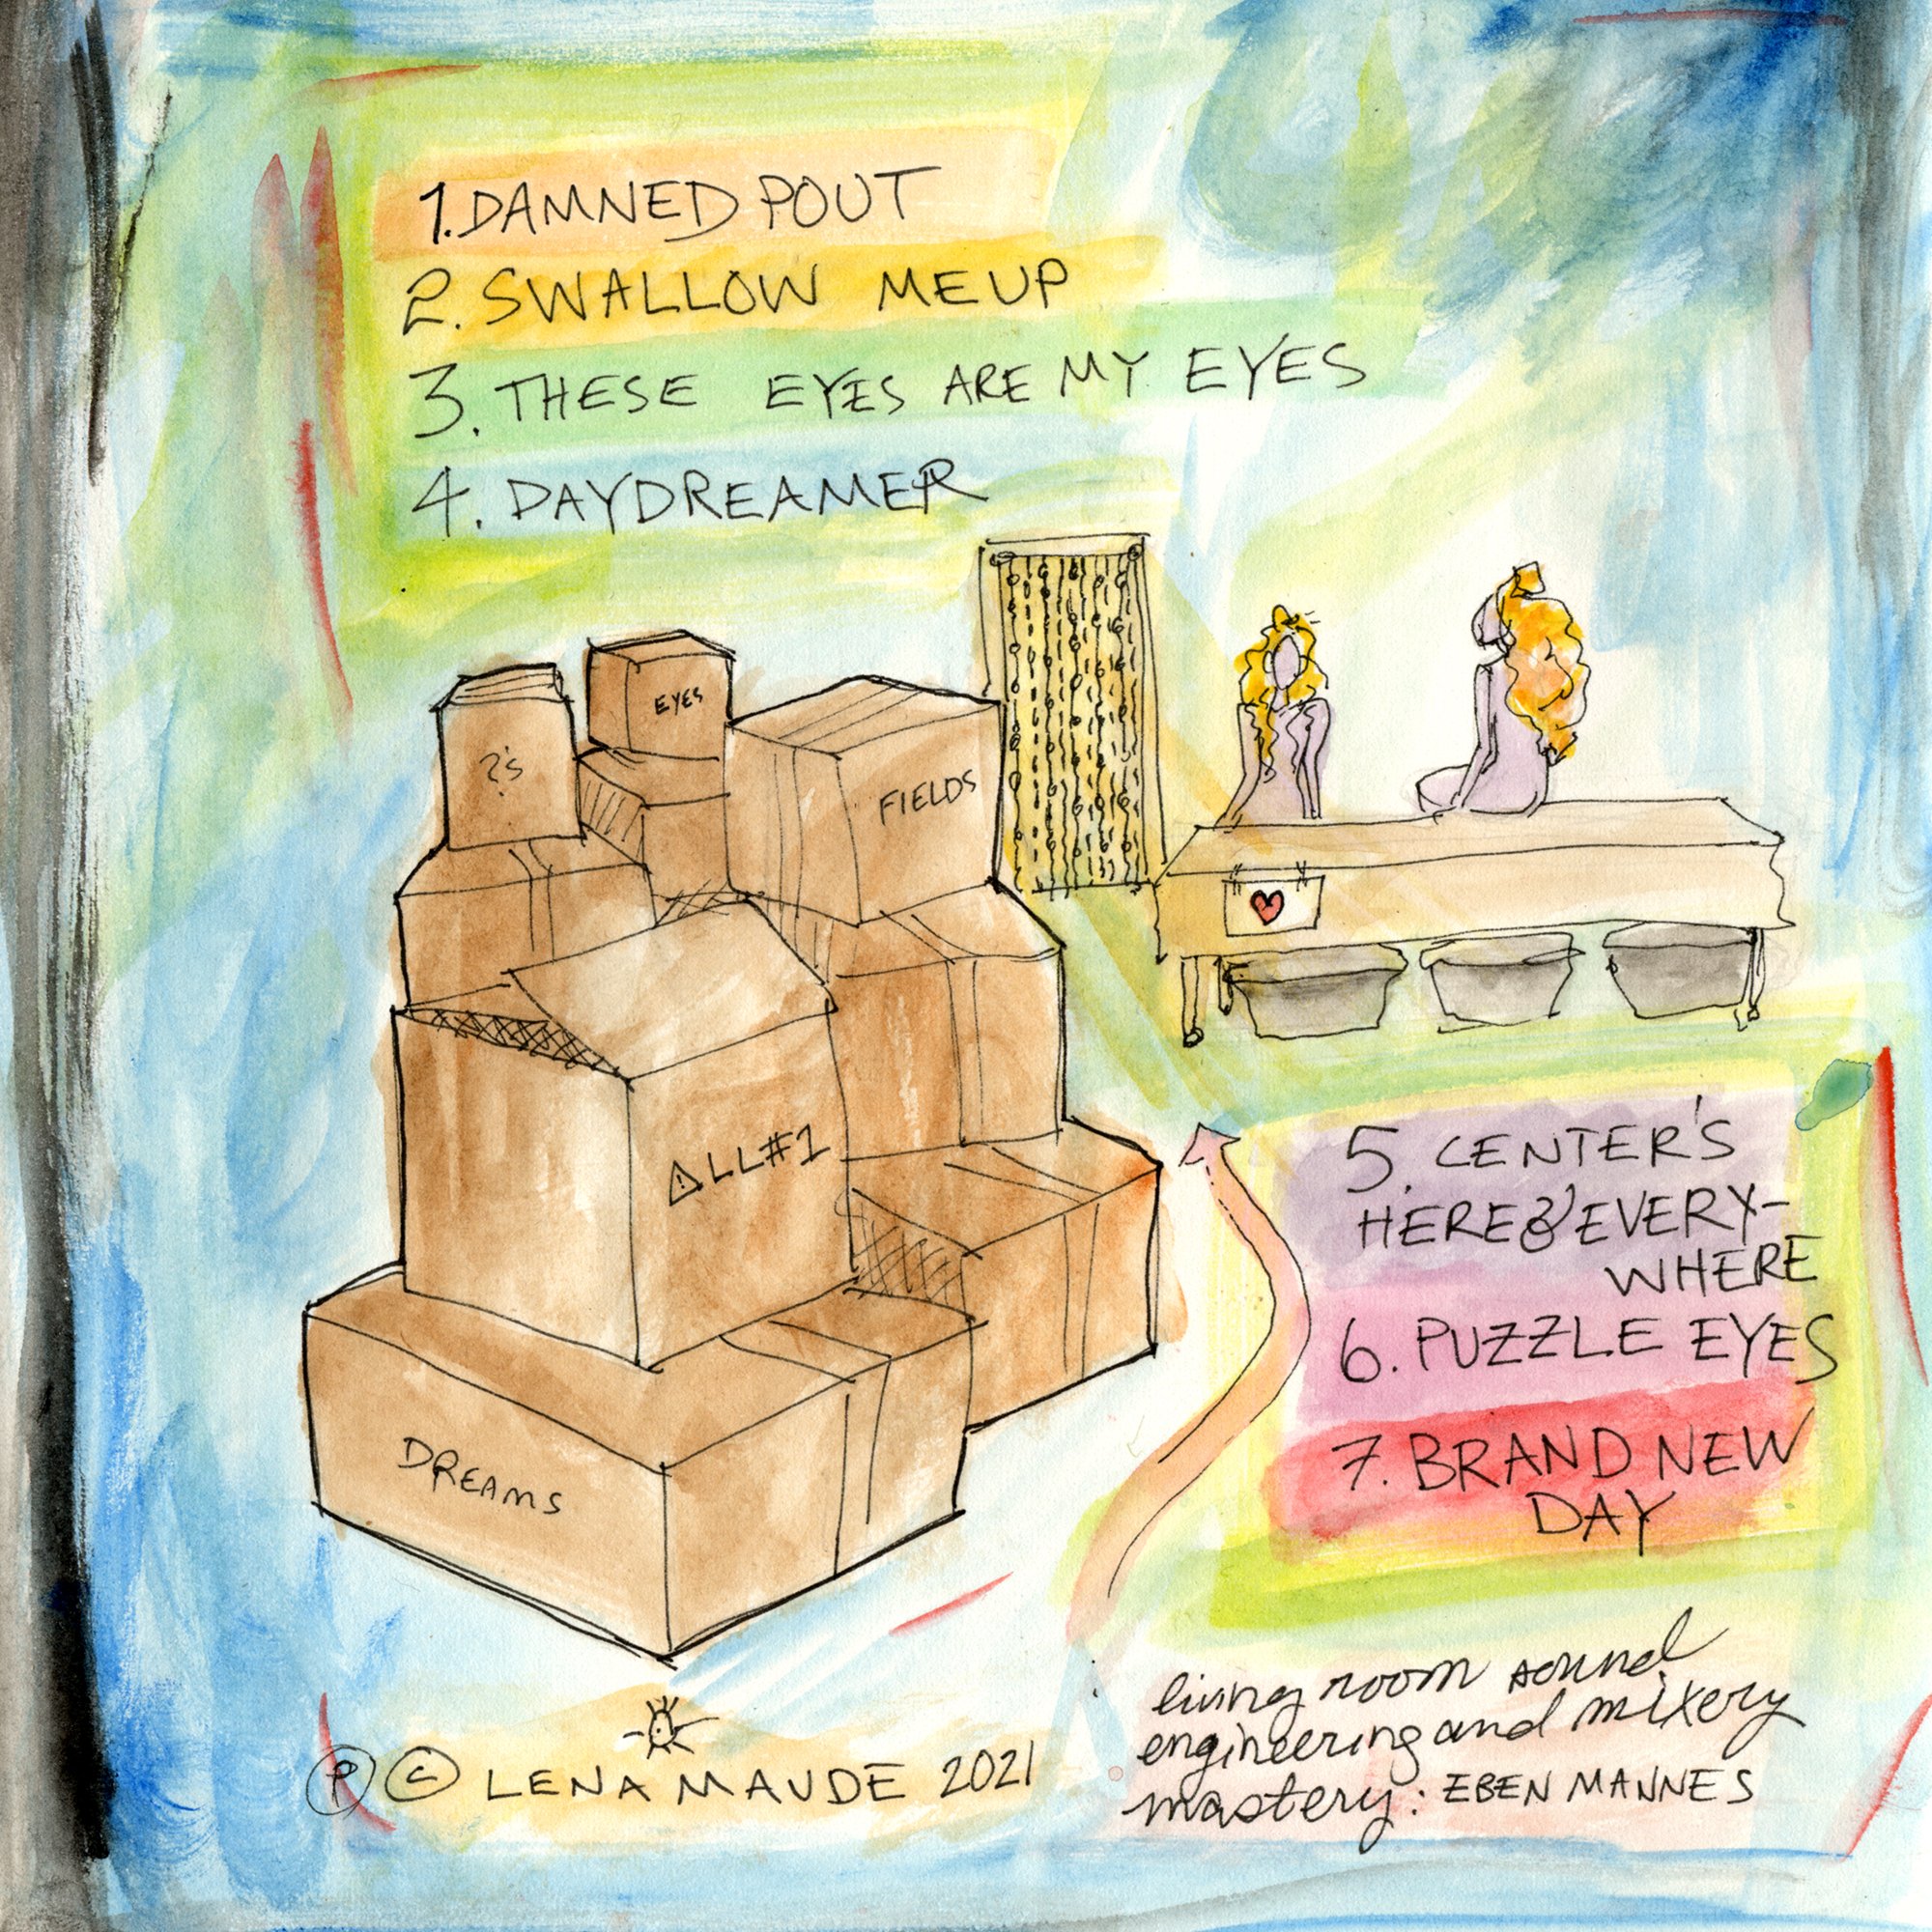 1. DAMNED POUT
2. SWALLOW ME UP
3. THESE EYES ARE MY EYES
4. DAYDREAMER
?'s
EYES
FIELDS
ALL#1
DREAMS
5. CENTER'S
HERE & EVERY-
WHERE
6. PUZZLE EYES
7. BRAND NEW
DAY
living room sound
engineering and mixery
mastery: EBEN MANNES
Ⓟ © LENA MAUDE 2021